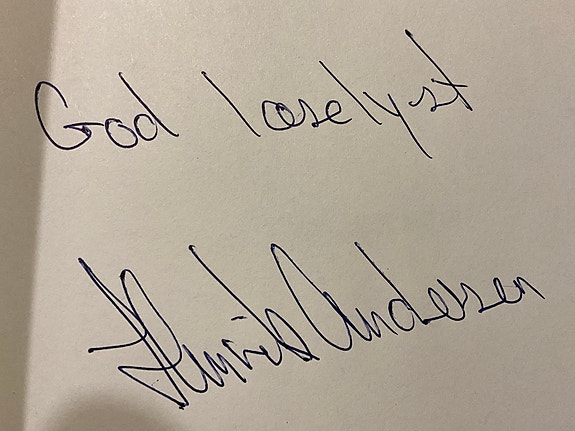 God læselyst
Henrik Andersen